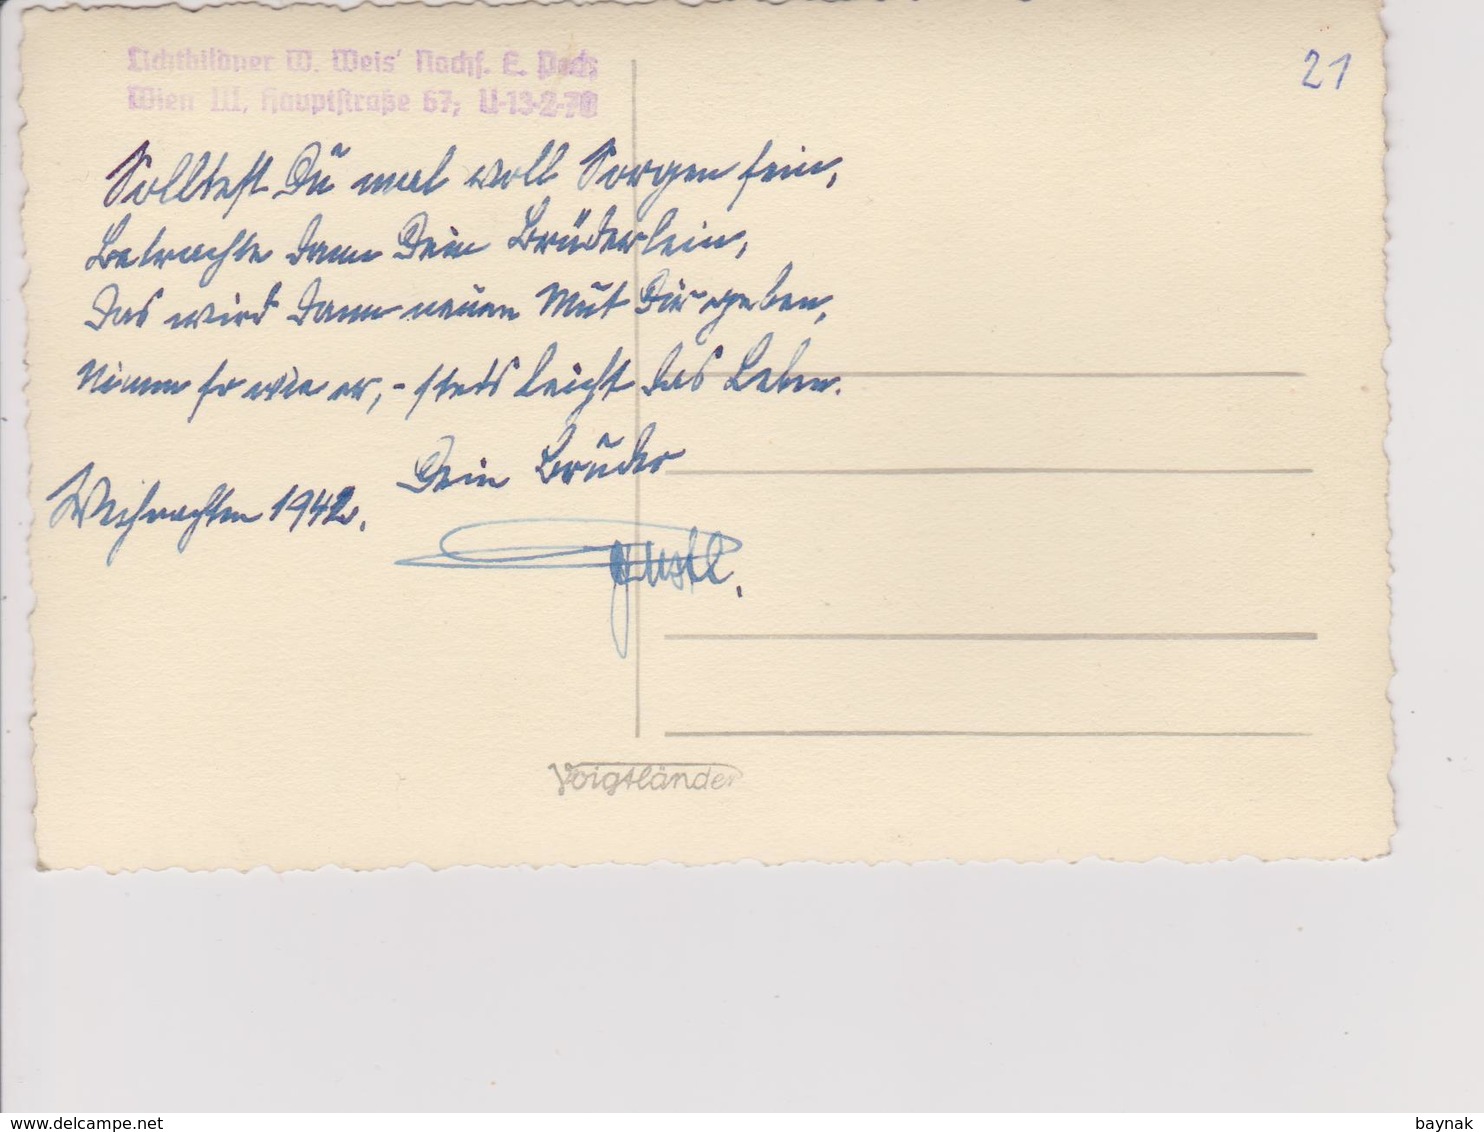 Lichtbildner W. Weis' Nachf. E.
Wien III, Hauptstraße 67, U-13-2-70
21
Solltest Du mal voll Sorgen sein,
Betrachte dann Dein Brüderlein,
Das wird dann neuen Mut Dir geben,
Nimm so wie er, - stets leicht das Leben.
Dein Bruder
Weihnachten 1942.
Gustl.
Voigtländer
baynak